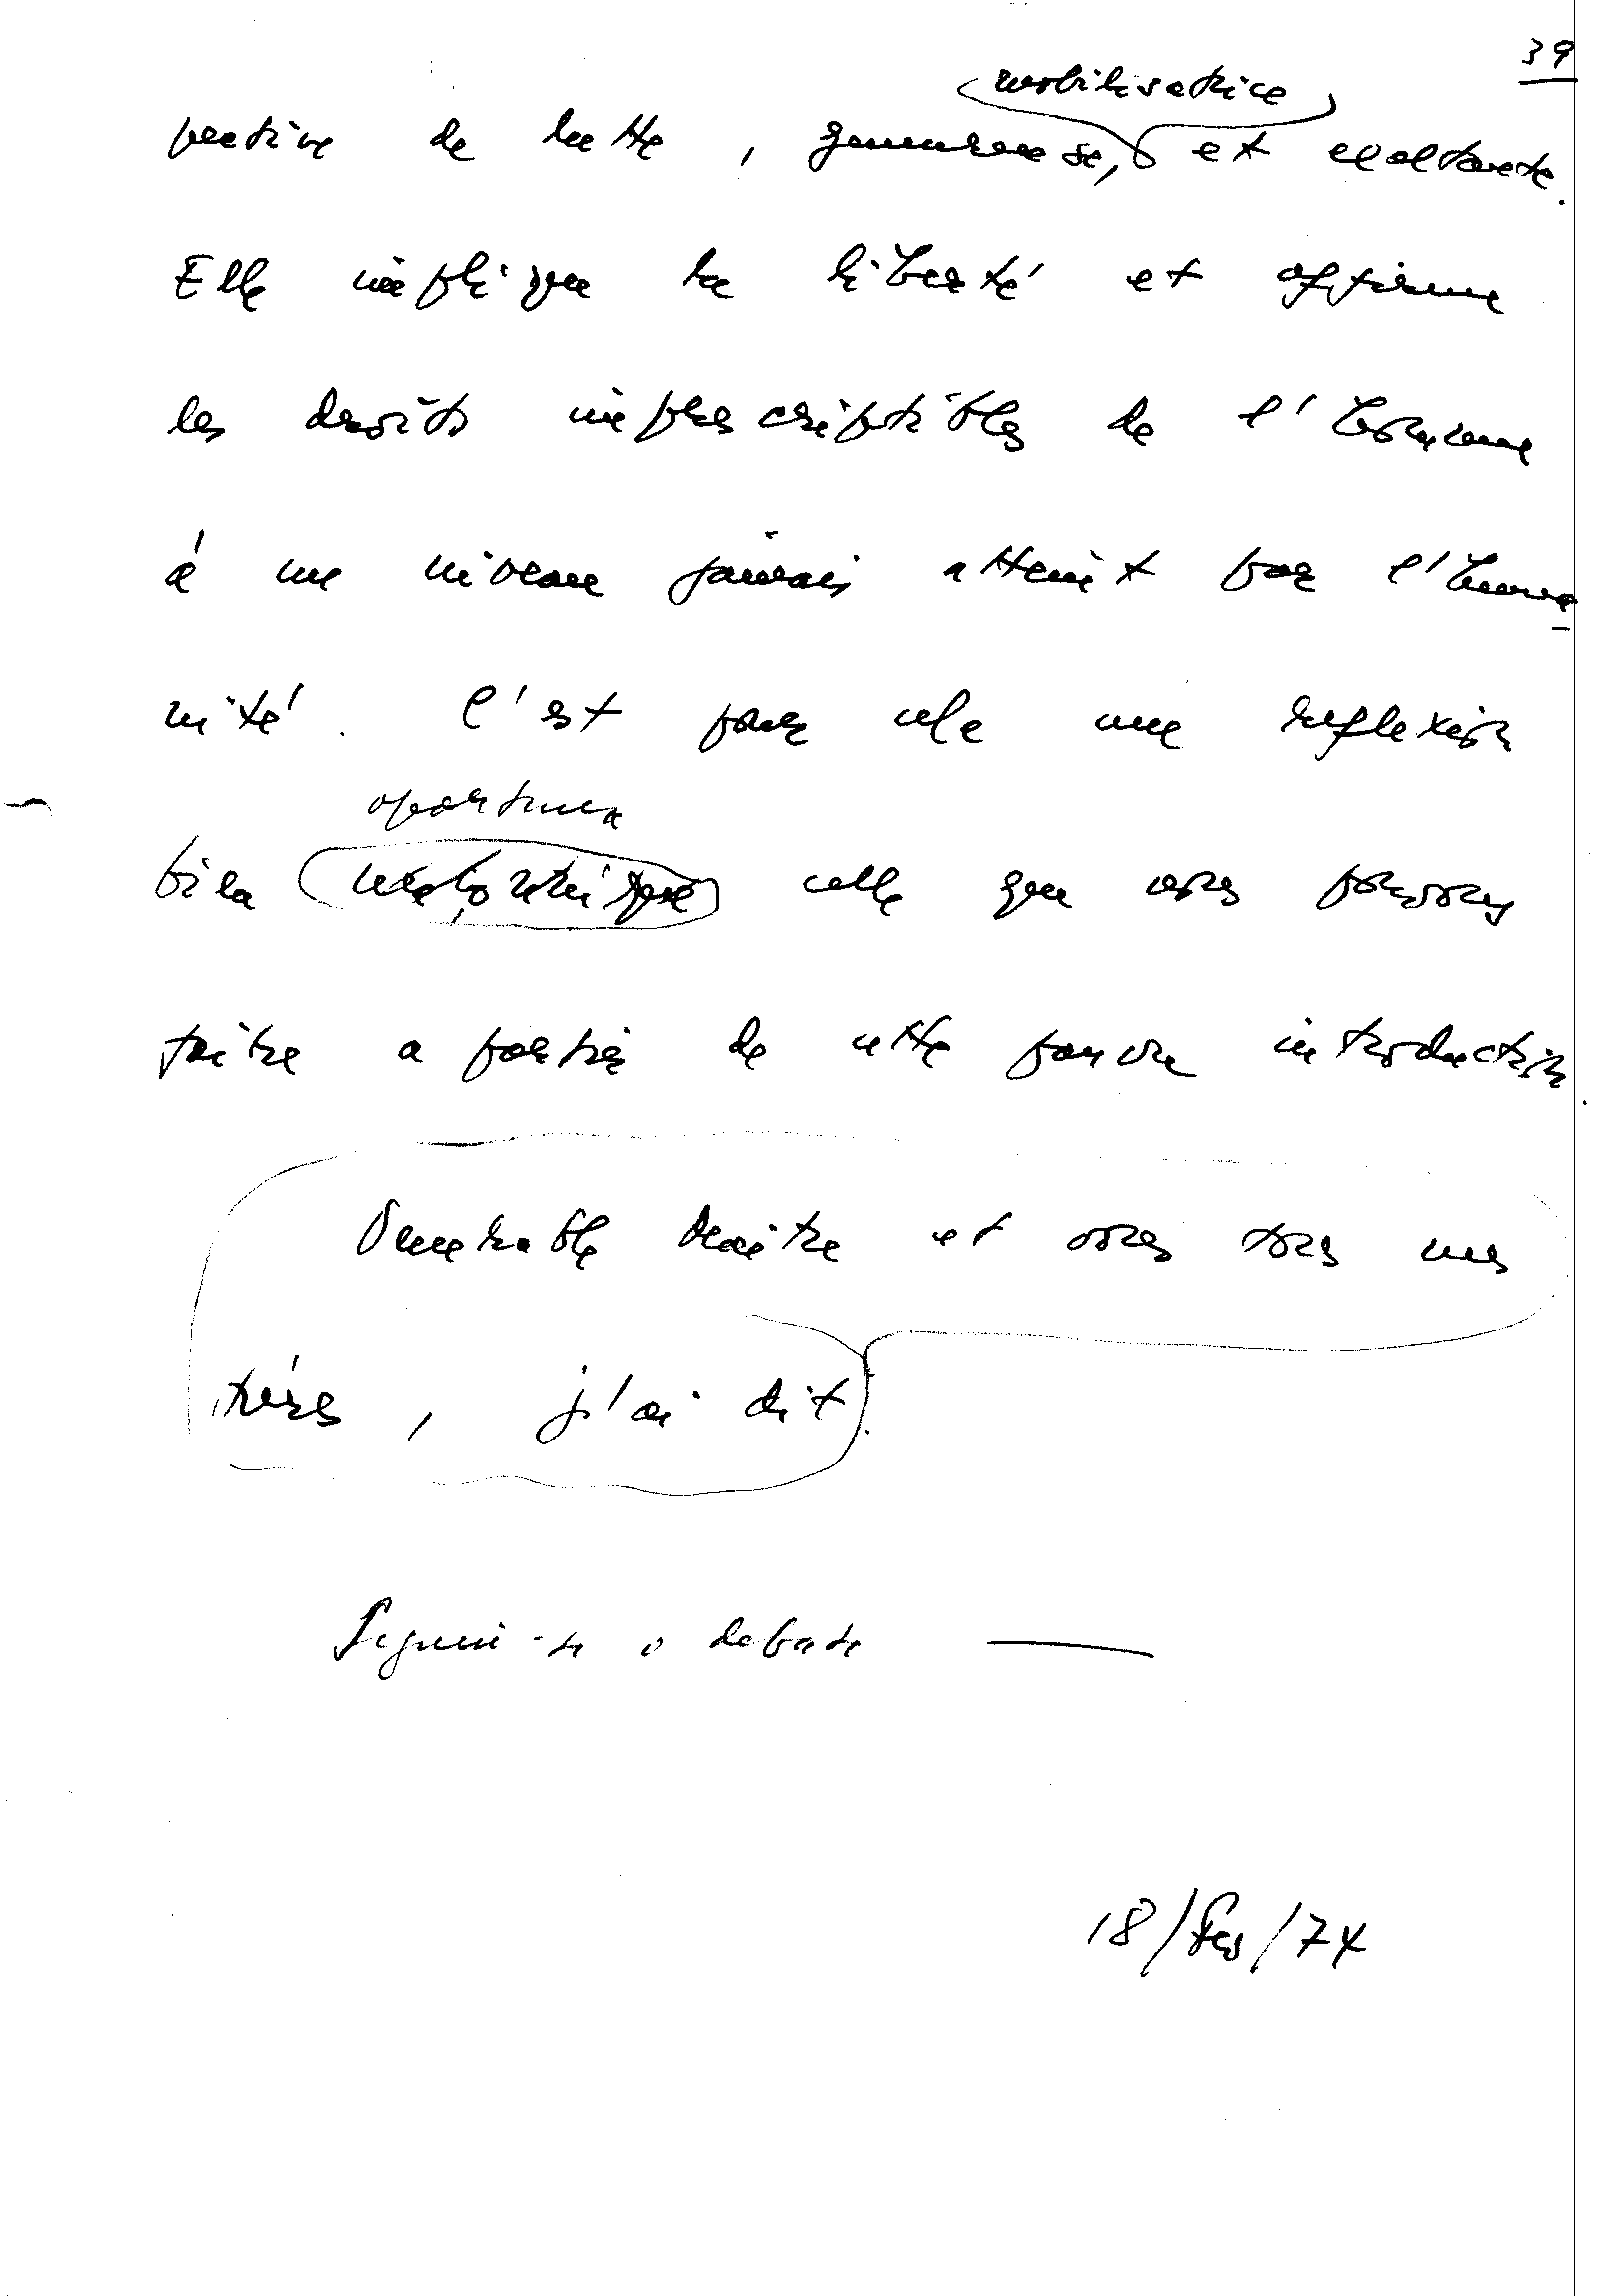 39
mobilisatrice
pective de lutte, genereuse, et exaltante.
Elle implique la liberté et affirme
les droits imprescriptibles de l'homme
á un niveau jamais atteint par l'huma
nité. C'est pour cela une reflexion
oportuna
bien celle que vous pouvons
faire a partir de cette pauvre introduction.
Venerable Maitre et vous tous mes
fréres, j'ai dit.
Seguiu-se o debate
18/Fev/74